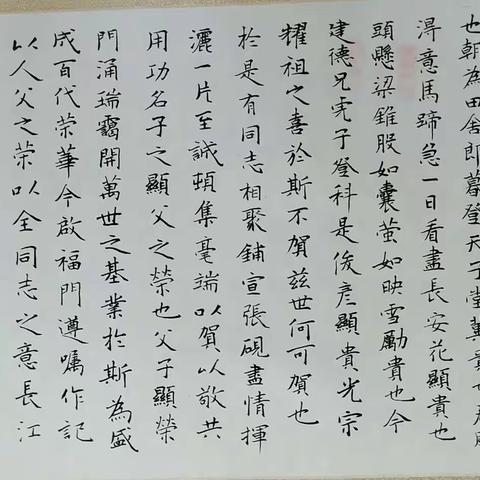 也朝為田舍郎暮登天子堂黃貴也
淂意馬蹄急一日看盡長安花顯貴也
頭懸梁錐股如囊萤如映雪勵貴也今
建德兄虎子登科是俊彦顯貴光宗
耀祖之喜於斯不賀兹世何可賀也
於是有同志相聚鋪宣張硯盡情揮
灑一片至誠頓集毫端以賀以敬共
用功名子之顯父之榮也父子顯榮
門涌瑞靄開萬世之基業於斯為盛
成百代荣華今啟福門遵嘱作記
以人父之荣以全同志之意長江